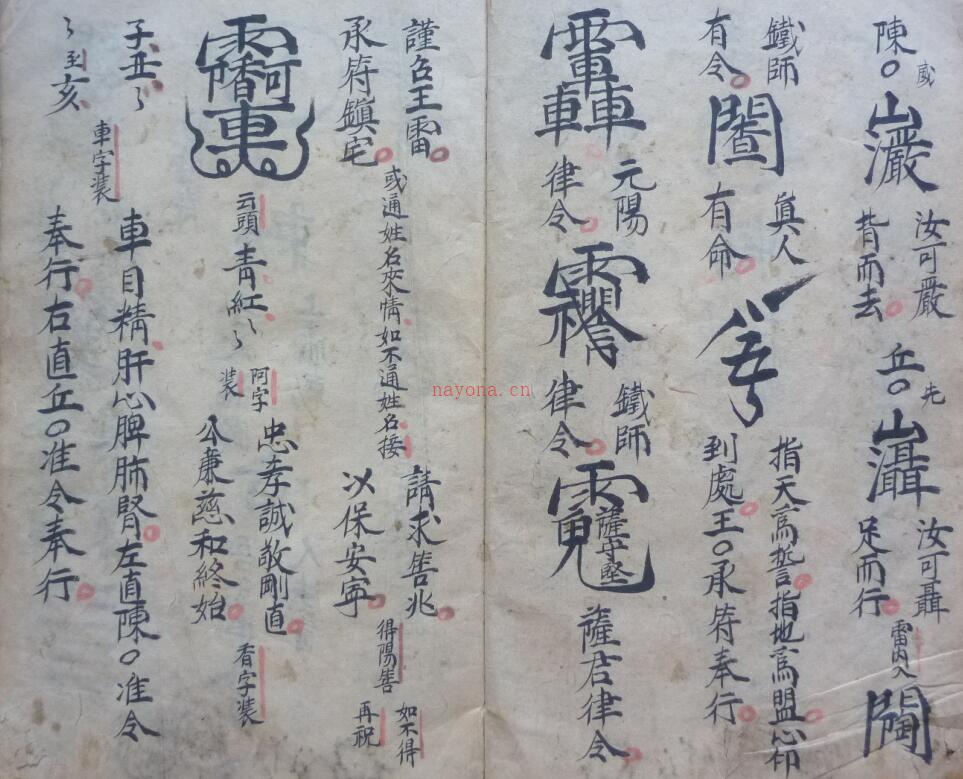 陳〇
山
汝可嚴
背而去
丘〇
先
山
汝可聶
足而行
雷内入
鐵師
有令
眞人
有命
指天為誓指地為盟心印
到處王〇承符奉行
元陽
律令
鐵師
律令
薩守堅
薩君律令
謹召王雷
承符鎮宅
或通姓名來情如不通姓名接
請求善兆
以保安寧
得陽善
如不得
再祝
雲頭
青紅
阿字
装
忠孝誠敬剛直
公廉慈和終始
香字装
子丑
到亥
車字装
車目精肝心脾肺腎左直陳〇准令
奉行右直丘〇准令奉行
nayona.cn